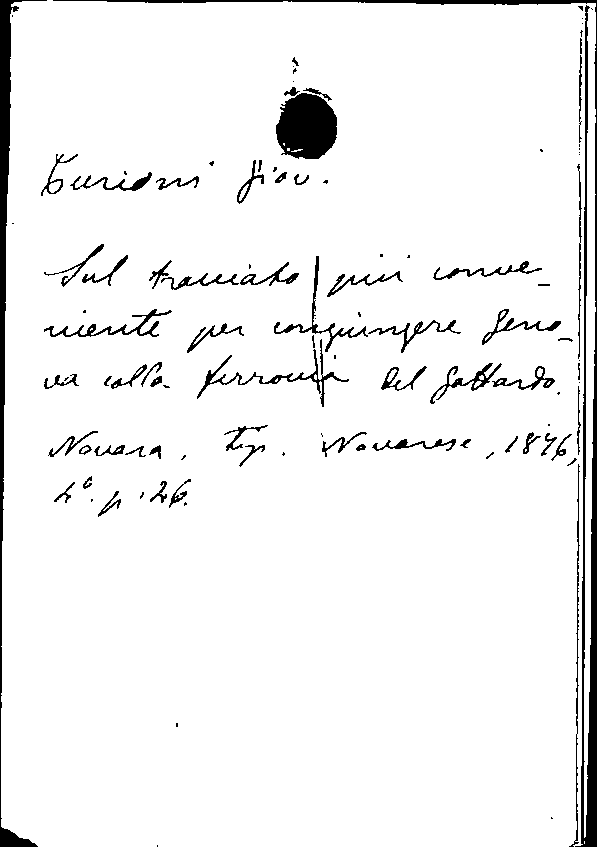 Curioni Giov.
Sul tracciato più conve-
niente per congiungere Geno-
va colla ferrovia del Gottardo.
Novara, tip. Novarese, 1876,
4°. p. 26.